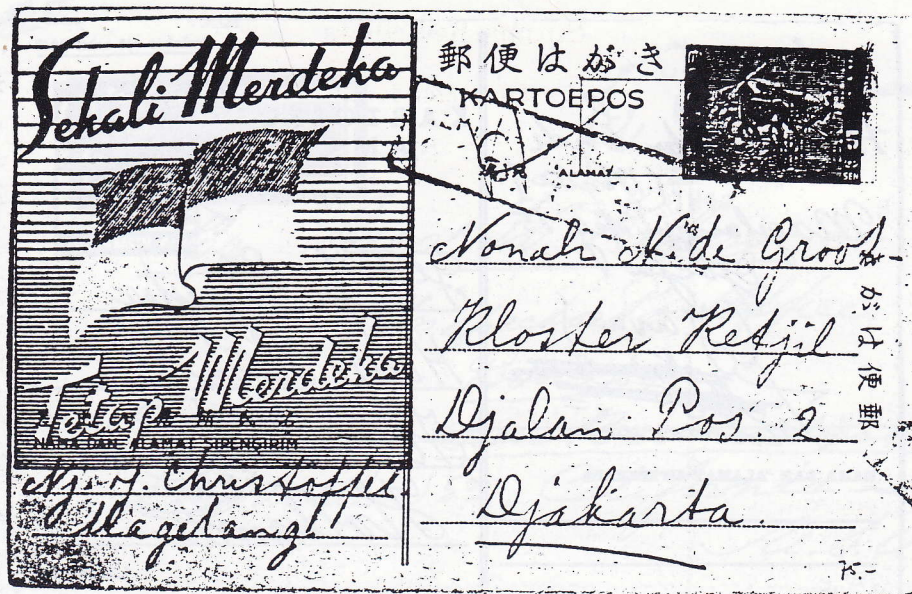 Sekali Merdeka
Tetap Merdeka
NAMA DAN ALAMAT SIPENGIRIM
Nj. J. Christoffel
Magelang
郵便はがき
KARTOEPOS
ALAMAT
SEN
Nonah N. de Groot
Kloster Ketjil
Djalan Pos. 2
Djakarta.
きがは便郵
75.-